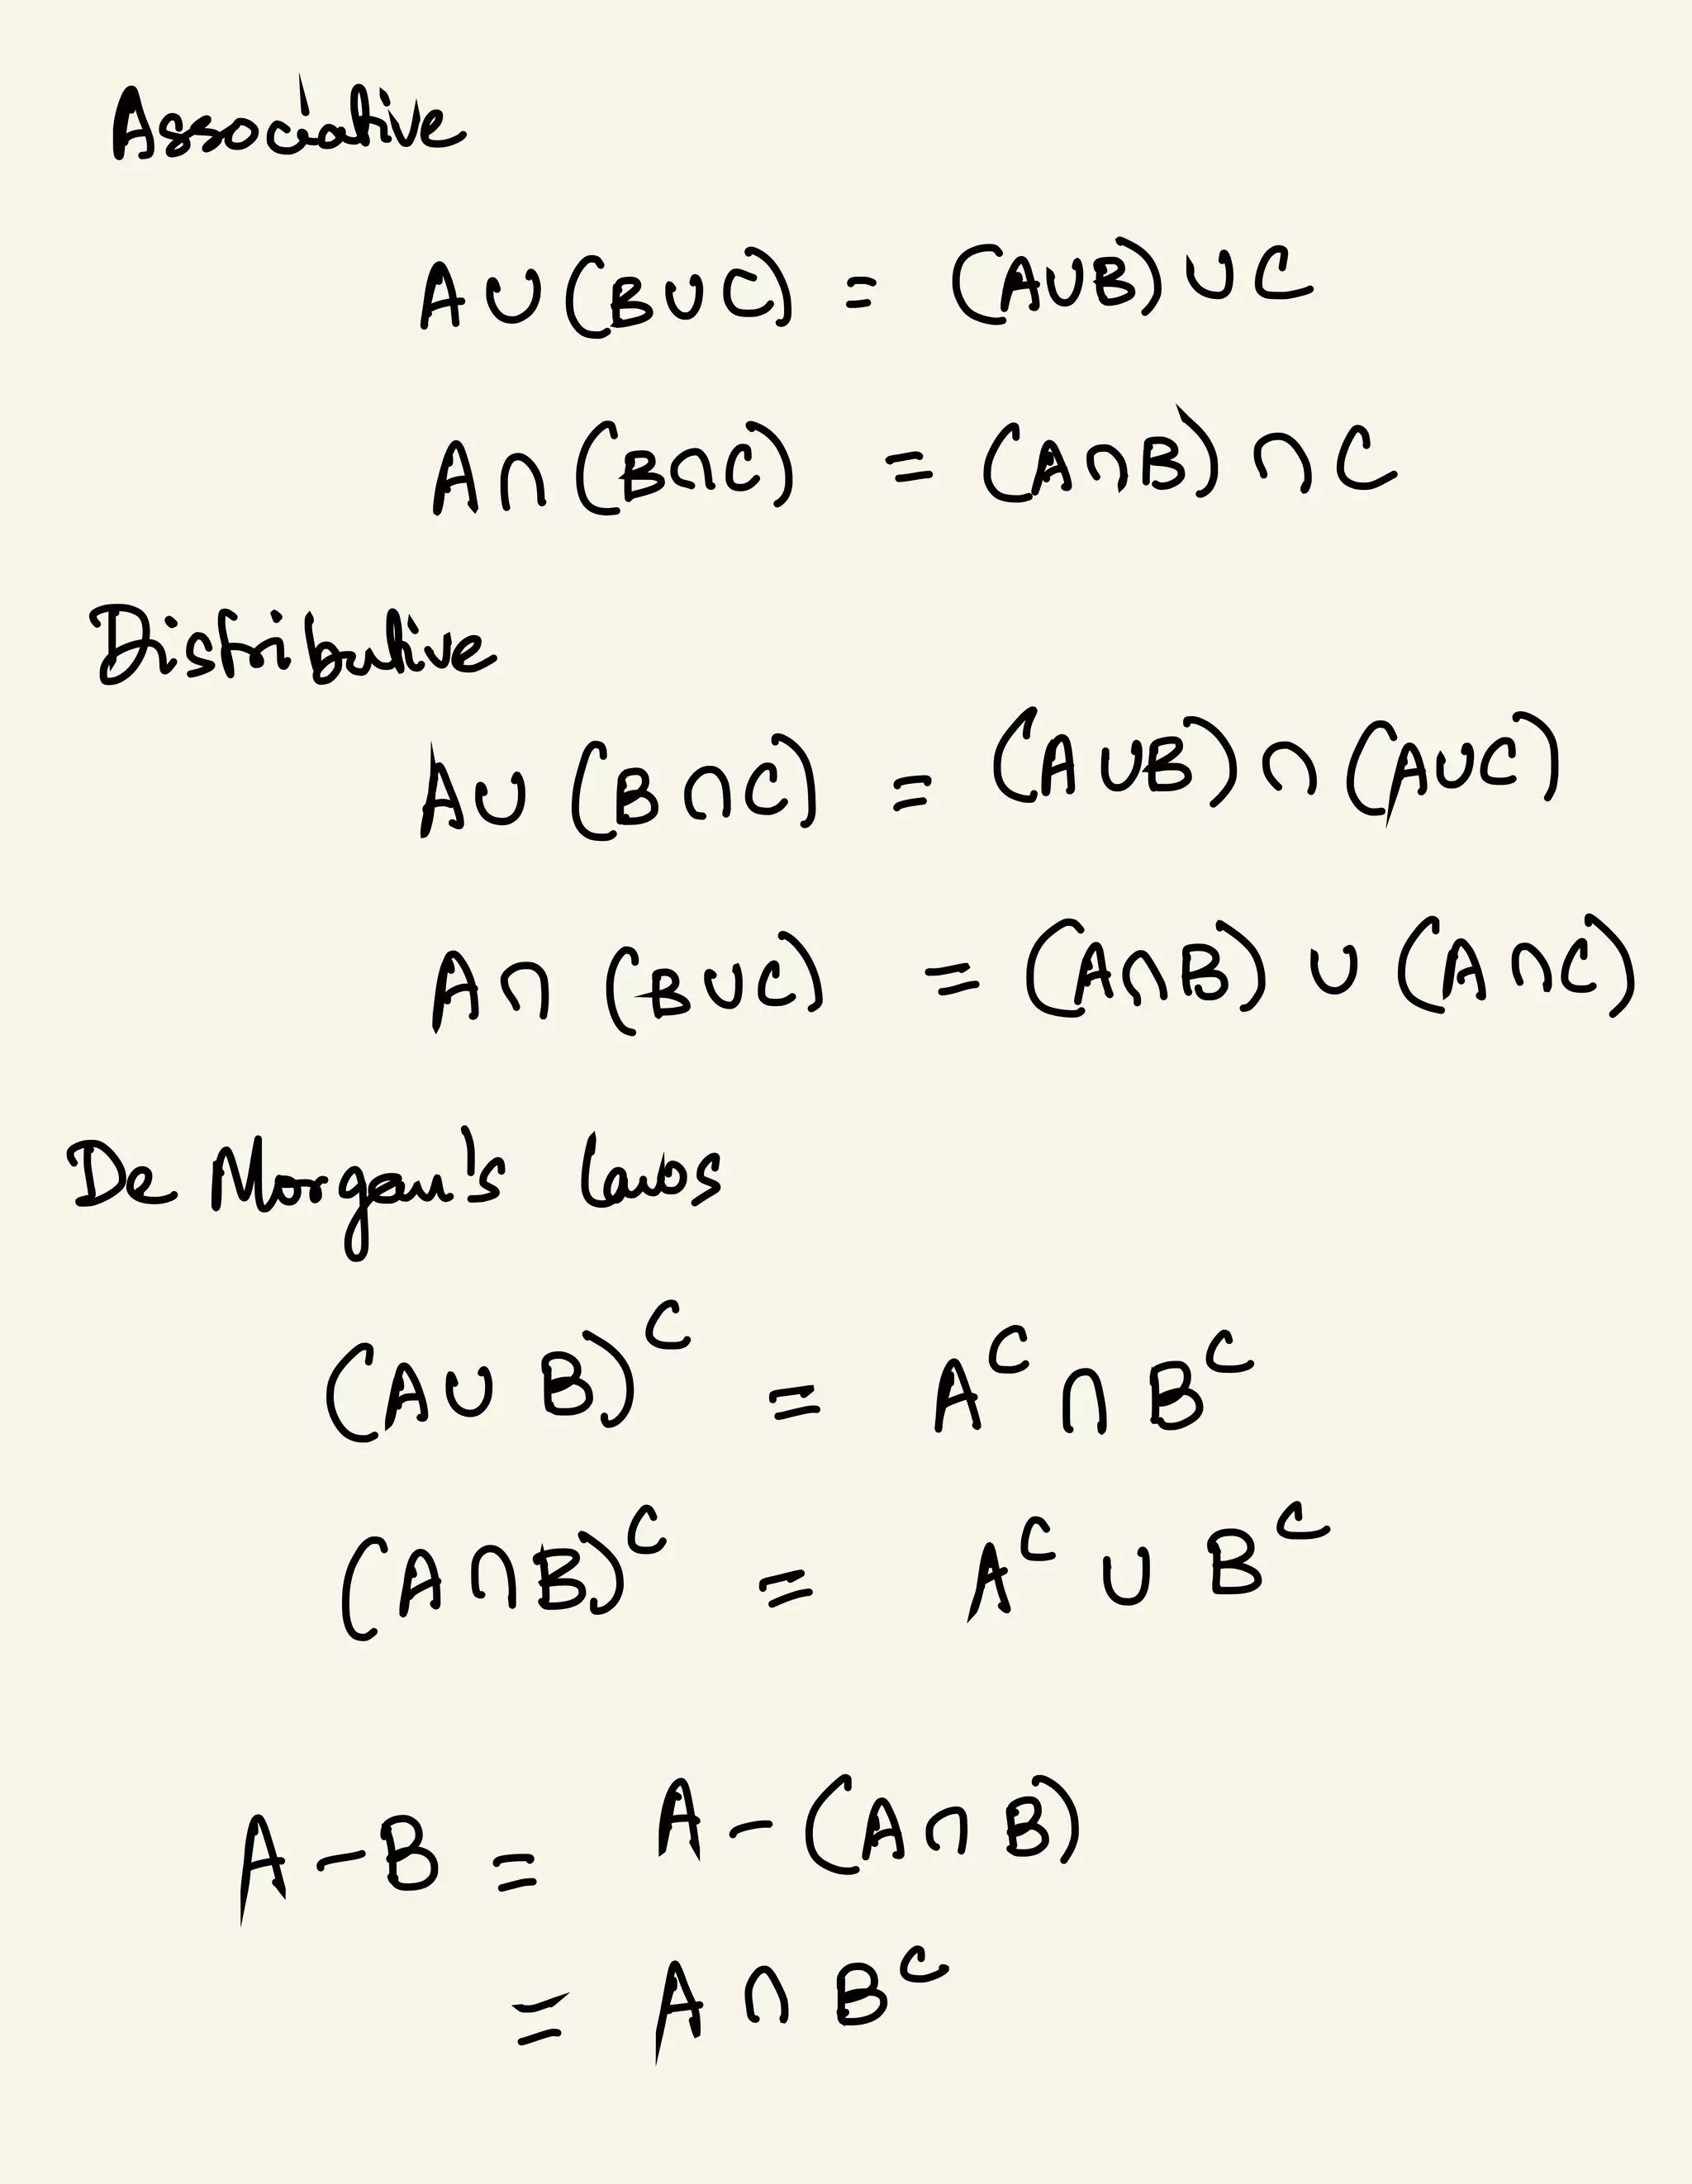 Associative
A∪(B∪C) = (A∪B)∪C
A∩(B∩C) = (A∩B)∩C
Distributive
A∪(B∩C) = (A∪B)∩(A∪C)
A∩(B∪C) = (A∩B)∪(A∩C)
De Morgan's laws
(A∪B)ᶜ = Aᶜ∩Bᶜ
(A∩B)ᶜ = Aᶜ∪Bᶜ
A-B = A-(A∩B)
= A∩Bᶜ